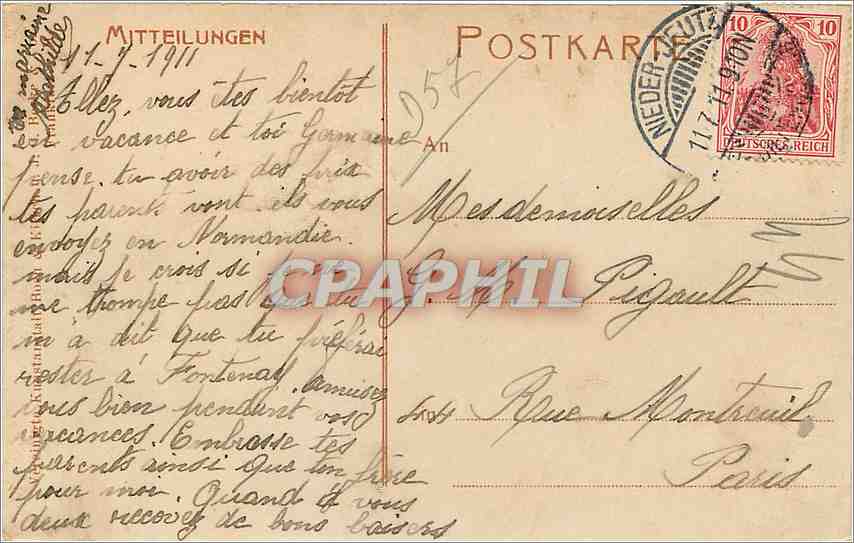 MITTEILUNGEN
POSTKARTE
11-7-1911
Allez, vous êtes bientot
en vacance et toi Germaine
pense-tu avoir des prix
tes parent vont-ils vous
envoyez en Normandie.
mais je crois si je ne
me trompe pas que tu
m'a dit que tu préférai
rester à Fontenay amusez
vous bien pendant vos
vacances. Embrasse tes
parents ainsi que ton frère
pour moi. Quand à vous
deux recevez de bons baisers
marraine
Mathilde
An
Mesdemoiselles
G. M. Pigault
44 Rue Montreuil
Paris
D57
NIEDER-JEUTZ
11.7.11.9-10N
10 10
DEUTSCHES REICH
CPAPHIL